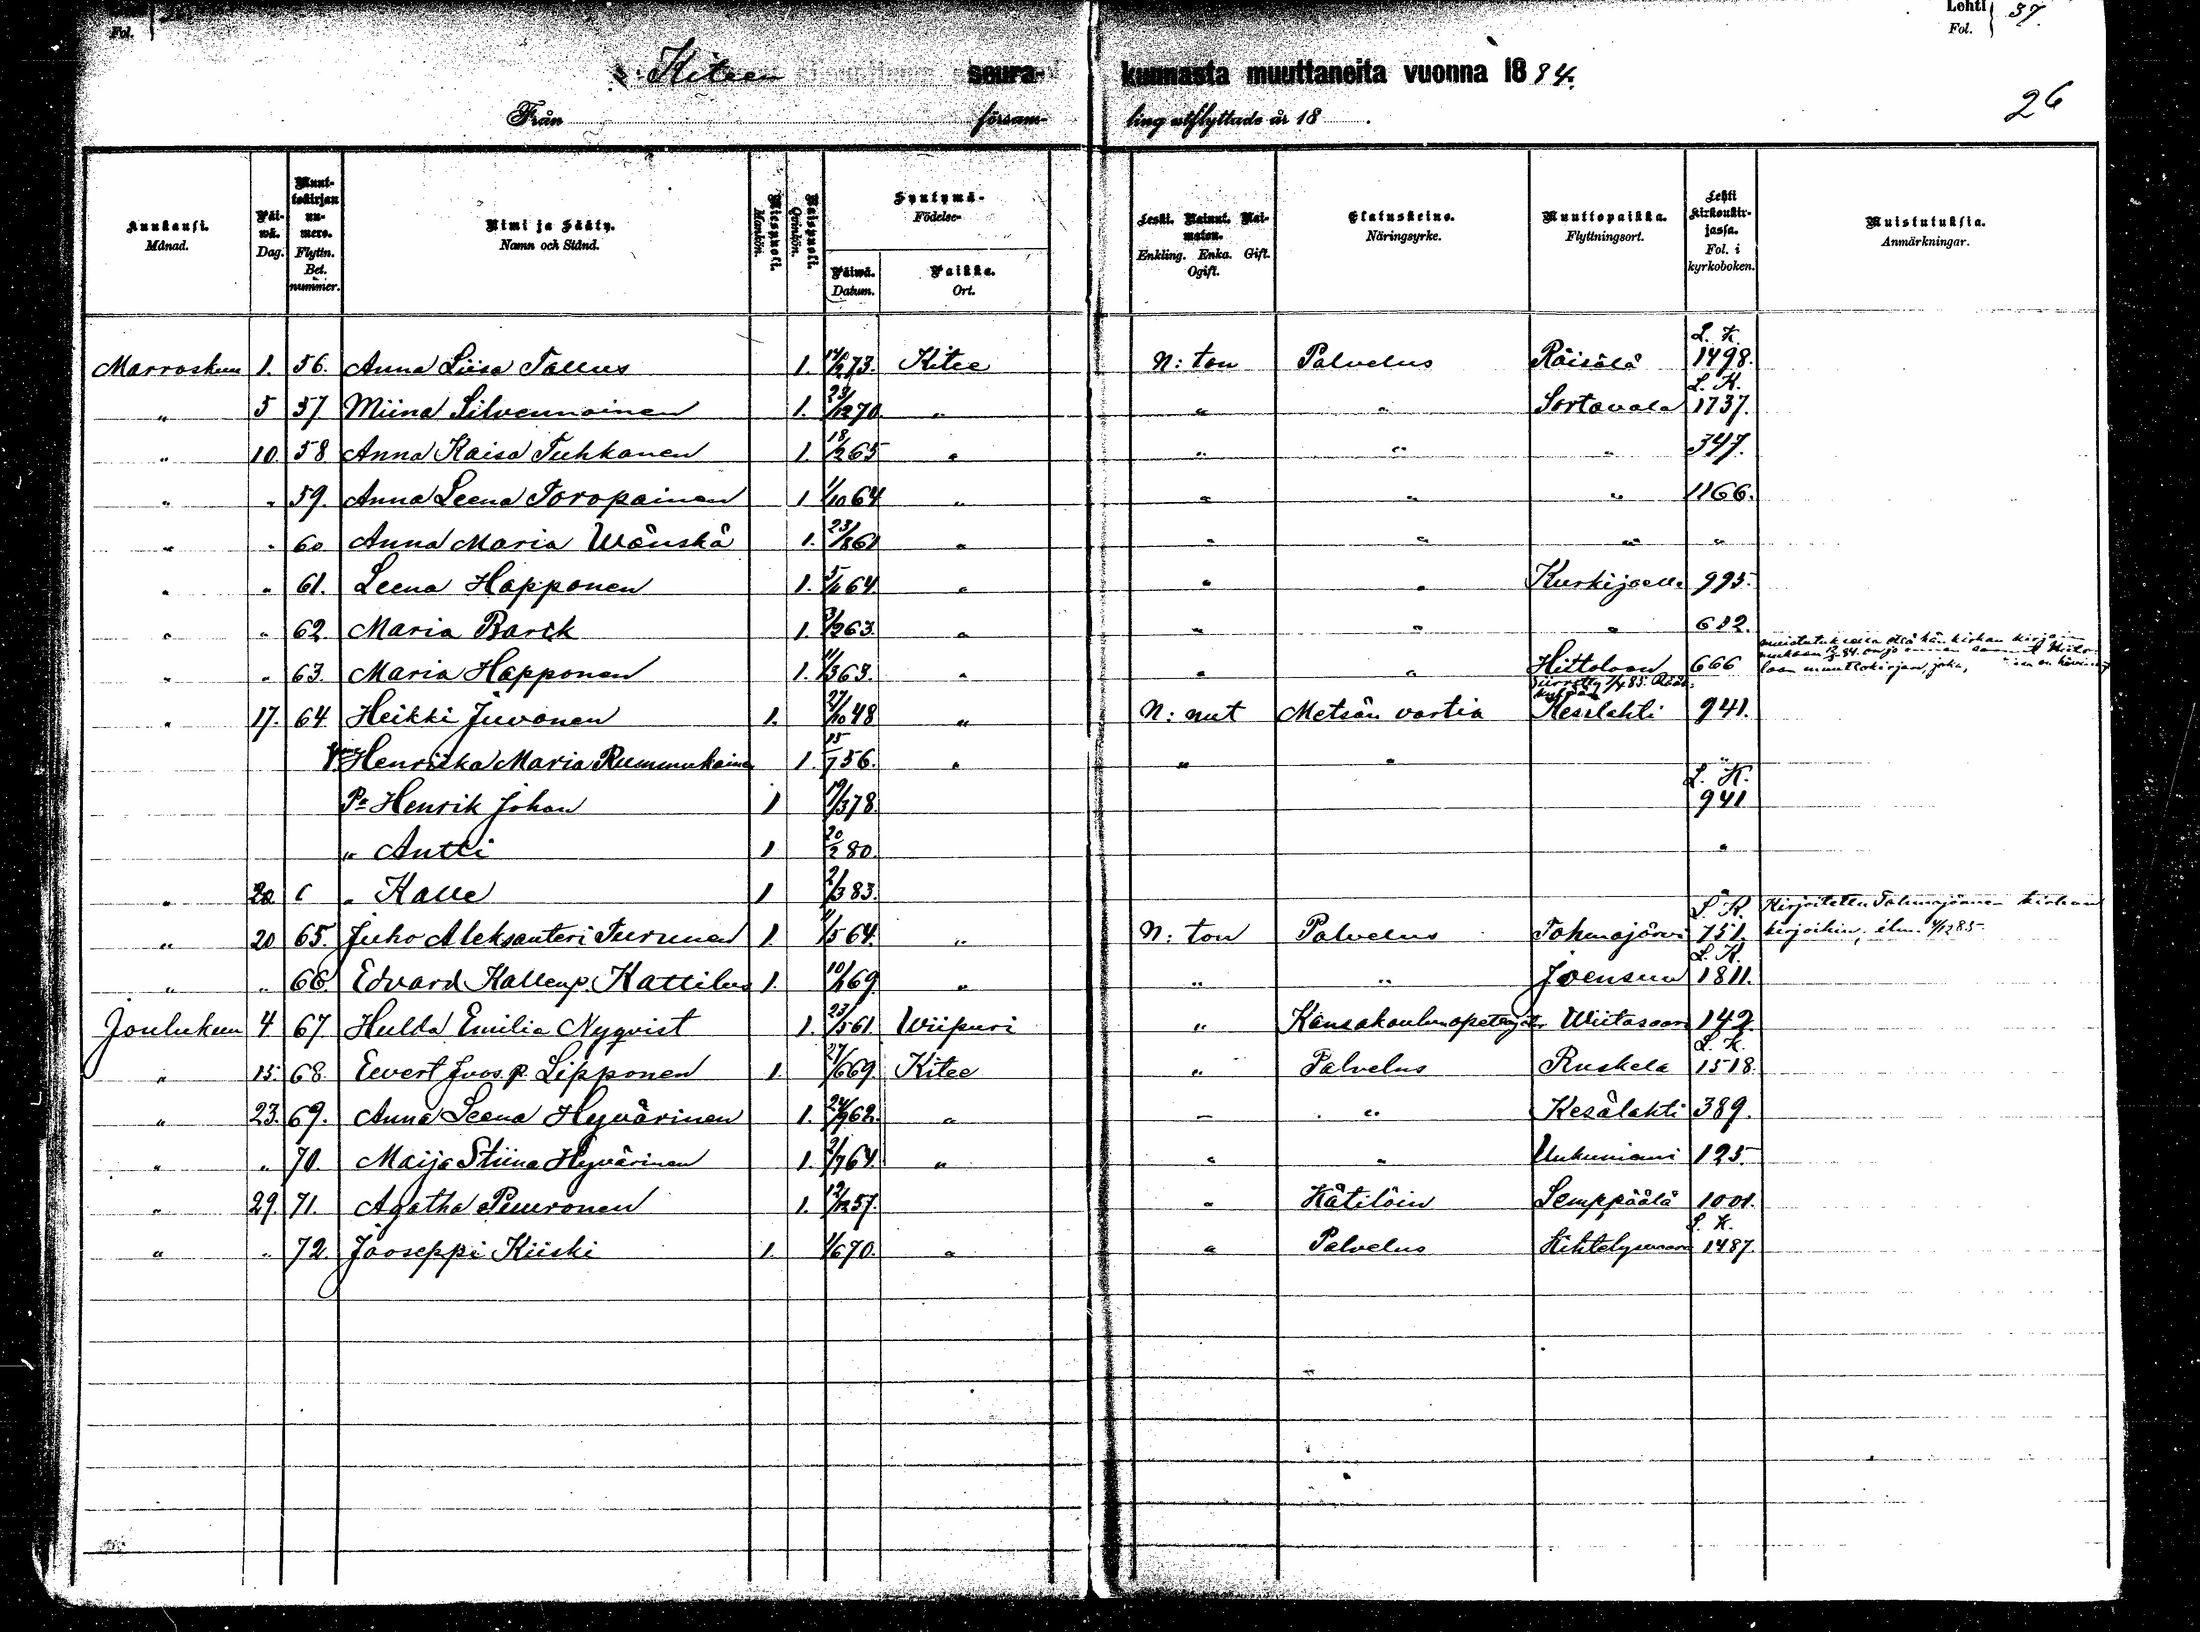 Fol.
Lehti 37.
Fol.
Kiteen seura- kunnasta muuttaneita vuonna 1884.
Från försam- ling utflyttade år 18
26
Kuukausi. Månad.
Päi- wä. Dag.
Muut- tokirjan nu- mero. Flyttn. Bet. nummer.
Nimi ja Sääty. Namn och Stånd.
Miespuoli. Mankön.
Naispuoli. Qvinkön.
Syntymä- Födelse-
Päiwä. Datum.
Paikka. Ort.
Leski. Nainut. Nai- maton. Enkling. Enka. Gift. Ogift.
Elatuskeino. Näringsyrke.
Muuttopaikka. Flyttningsort.
Lehti kirkonkir- jassa. Fol. i kyrkoboken.
Muistutuksia. Anmärkningar.
Marraskuu 1. 56. Anna Liisa Tallus 1. 14/2 73. Kitee N: ton Palvelus Räisälä L. K. 1498.
" 5 57 Miina Silvennoinen 1. 23/12 70. " " " Sortavala L. K. 1737.
" 10. 58 Anna Kaisa Tuhkanen 1. 18/2 65 " " " " 347.
" " 59. Anna Leena Toropainen 1 1/10 64 " " " " 1166.
" " 60 Anna Maria Wänskä 1. 23/8 61 " " " " "
" " 61. Leena Happonen 1. 64. " " " Kurkijoelle 995.
" " 62. Maria Barck 1. 3/2 63. " " " " 682.
" " 63. Maria Happonen 1. 11/3 63. " " " Hiitolaan 666
" 17. 64. Heikki Juvonen 1. 27/10 48 " N: nut Metsän vartia Kesälahti 941.
Henriika Maria Rummukainen 1. 15/7 56. " " " "
Pa Henrik Johan 1 19/3 78. L. K. 941
" Antti 1 20/2 80. "
" 20 " Kalle 1 2/3 83. "
" 20 65. Juho Aleksanteri Turunen 1. 11/5 64. " N: ton Palvelus Tohmajärvi L. K. 751. Kirjoitettu Tohmajärven kirkon kirjoihin, ilm.
" " 66. Edvard Kallenp. Kattilus 1. 69. " " " Joensuu L. K. 1811.
Joulukuu 4 67. Hulda Emilia Nyqvist 1. 23/5 61. Wiipuri " Kansakoulunopettajatar Wiitasaari 142.
" 15. 68. Eevert Juos.p. Lipponen 1. 27/6 69. Kitee " Palvelus Ruskela L. K. 1518.
" 23. 69. Anna Leena Hyvärinen 1. 24/9 62. " " " Kesälahti 389.
" " 70. Maija Stiina Hyvärinen 1. 2/7 64. " " " Uukuniemi 125.
" 29. 71. Agatha Puuronen 1. 12/12 57. " Kätilöin Lemppäälä 1001.
" " 72. Jooseppi Kiiski 1. 1/6 70. " " Palvelus Kihtelysvaara L. K. 1487.